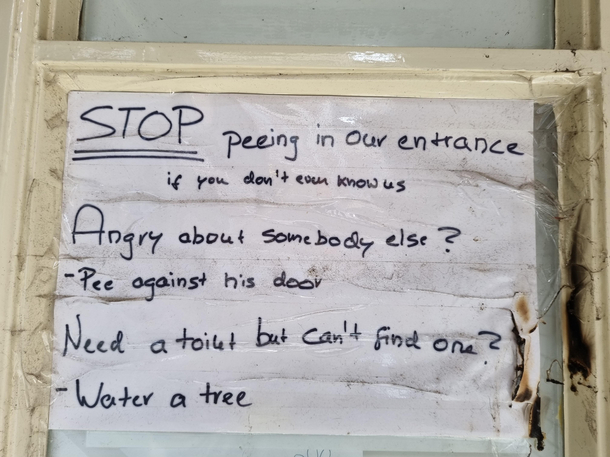 STOP peeing in our entrance
if you don't even know us
Angry about somebody else?
- Pee against his door
Need a toilet but can't find one?
- Water a tree